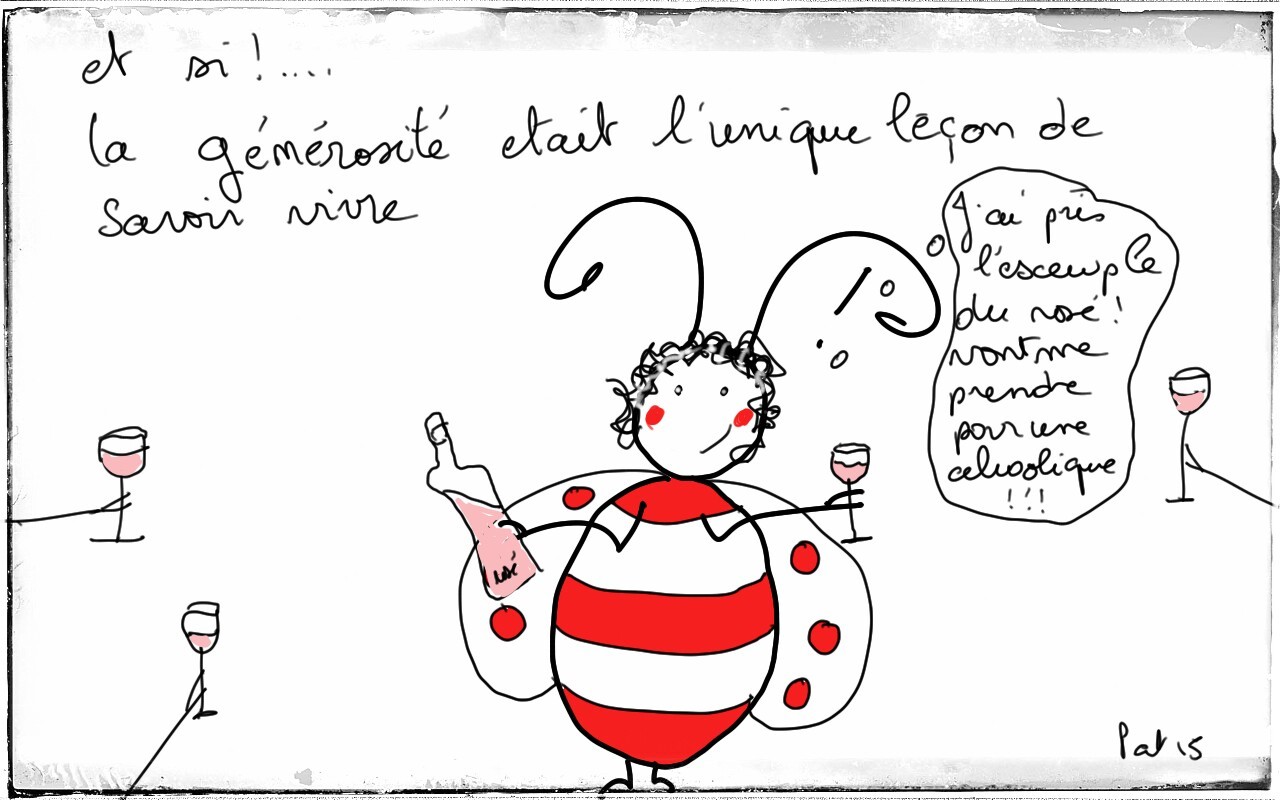 et si !....
la générosité etait l'unique leçon de
savoir vivre
J'ai pris
l'exemple
du rosé !
vont me
prendre
pour une
alcoolique
!!!
rosé
Pat 15